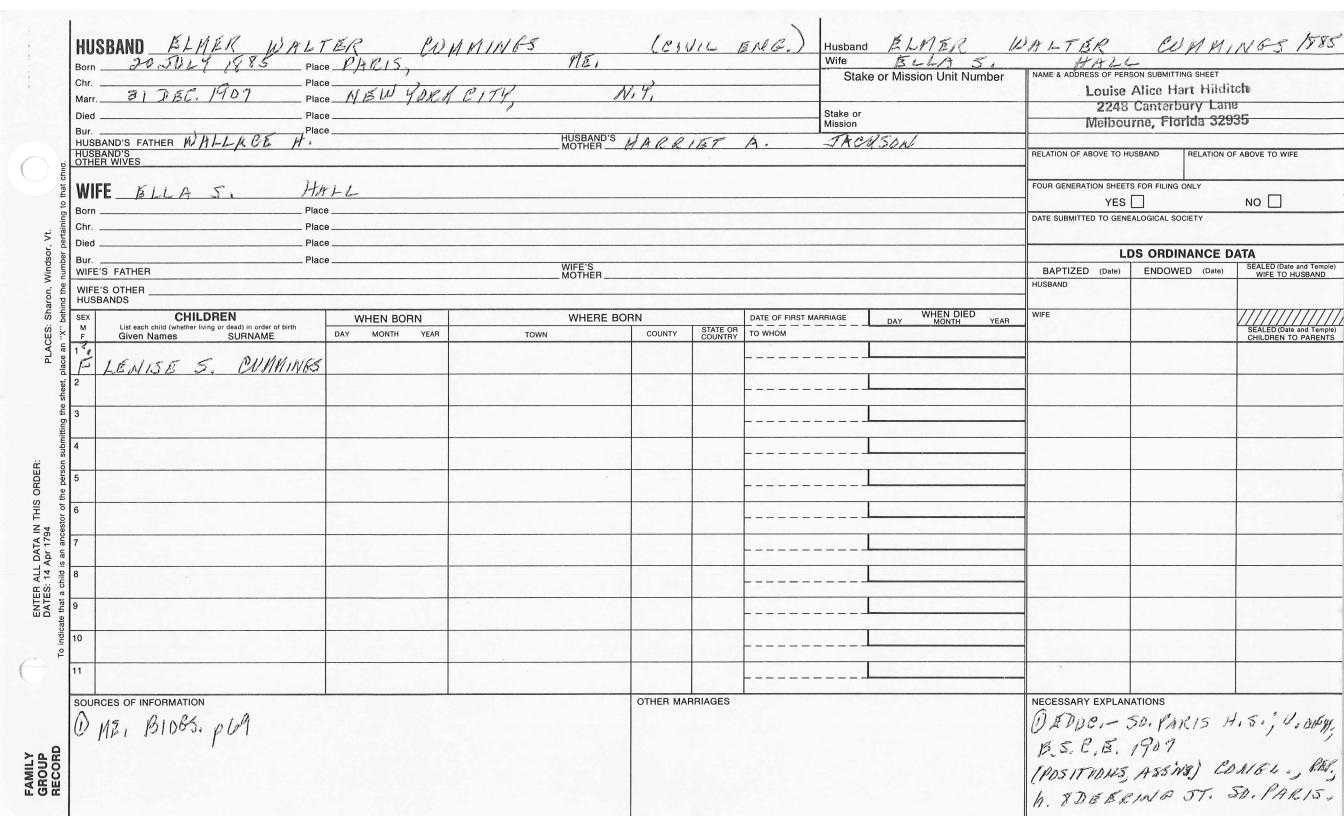 HUSBAND ELMER WALTER CUMMINGS (CIVIL ENG.)
Born 20 JULY 1885 Place PARIS, ME.
Chr. Place
Marr. 31 DEC. 1907 Place NEW YORK CITY, N.Y.
Died Place
Bur. Place
HUSBAND'S FATHER WALLACE H. HUSBAND'S MOTHER HARRIET A. JACKSON
HUSBAND'S OTHER WIVES
WIFE ELLA S. HALL
Born Place
Chr. Place
Died Place
Bur. Place
WIFE'S FATHER WIFE'S MOTHER
WIFE'S OTHER HUSBANDS
Husband ELMER WALTER CUMMINGS 1885
Wife ELLA S. HALL
Stake or Mission Unit Number
Stake or Mission
NAME & ADDRESS OF PERSON SUBMITTING SHEET
Louise Alice Hart Hilditch
2248 Canterbury Lane
Melbourne, Florida 32935
RELATION OF ABOVE TO HUSBAND RELATION OF ABOVE TO WIFE
FOUR GENERATION SHEETS FOR FILING ONLY
YES NO
DATE SUBMITTED TO GENEALOGICAL SOCIETY
LDS ORDINANCE DATA
BAPTIZED (Date) ENDOWED (Date) SEALED (Date and Temple) WIFE TO HUSBAND
HUSBAND
WIFE
SEALED (Date and Temple) CHILDREN TO PARENTS
SEX M F
CHILDREN
List each child (whether living or dead) in order of birth
Given Names SURNAME
WHEN BORN
DAY MONTH YEAR
WHERE BORN
TOWN COUNTY STATE OR COUNTRY
DATE OF FIRST MARRIAGE
TO WHOM
WHEN DIED
DAY MONTH YEAR
1 F LENISE S. CUMMINGS
2
3
4
5
6
7
8
9
10
11
SOURCES OF INFORMATION
① ME. BIOGS. p69
OTHER MARRIAGES
NECESSARY EXPLANATIONS
① EDUC.- SO. PARIS H.S.;
B.S.C.E. 1907
(POSITIONS, ASSNS) CONGL., REP.,
h. 8 DEERING ST. SO. PARIS.
PLACES: Sharon, Windsor, Vt.
ENTER ALL DATA IN THIS ORDER:
DATES: 14 Apr 1794
To indicate that a child is an ancestor of the person submitting the sheet, place an "X" behind the number pertaining to that child.
FAMILY GROUP RECORD